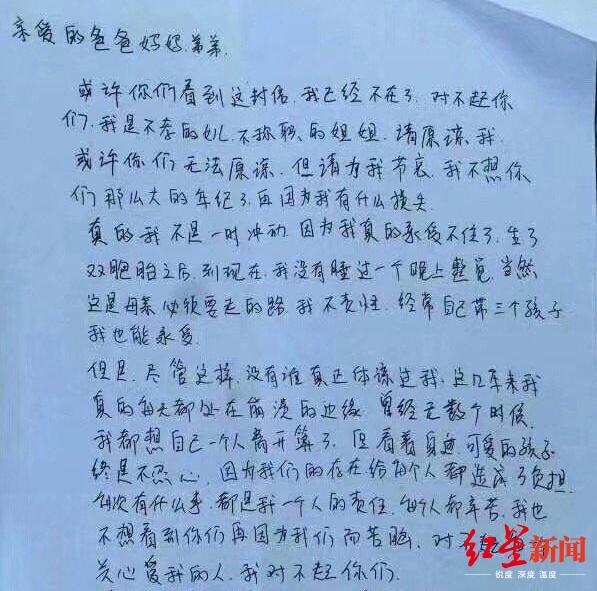 亲爱的爸爸妈妈.弟弟.
或许你们看到这封信.我已经不在了.对不起你
们.我是不孝的女儿.不称职的姐姐.请原谅我.
或许你们无法原谅.但请为我节哀.我不想你
们那么大的年纪了.再因为我有什么损失
真的我不是一时冲动.因为我真的承受不住了.生了
双胞胎之后.到现在.我没有睡过一个晚上整觉.当然
这是母亲必须要走的路.我不责怪.经常自己带三个孩子
我也能承受.
但是.尽管这样.没有谁真正体谅过我.这几年来我
真的每天都处在崩溃的边缘.曾经无数个时候.
我都想自己一个人离开算了.但看着身边可爱的孩子
终是不忍心.因为我们的存在给每个人都造成了负担.
每次有什么事.都是我一个人的责任.每个人都辛苦.我也
不想看到你们再因为我们而苦恼.对不起
关心爱我的人.我对不起你们.
红星新闻
锐度 深度 温度